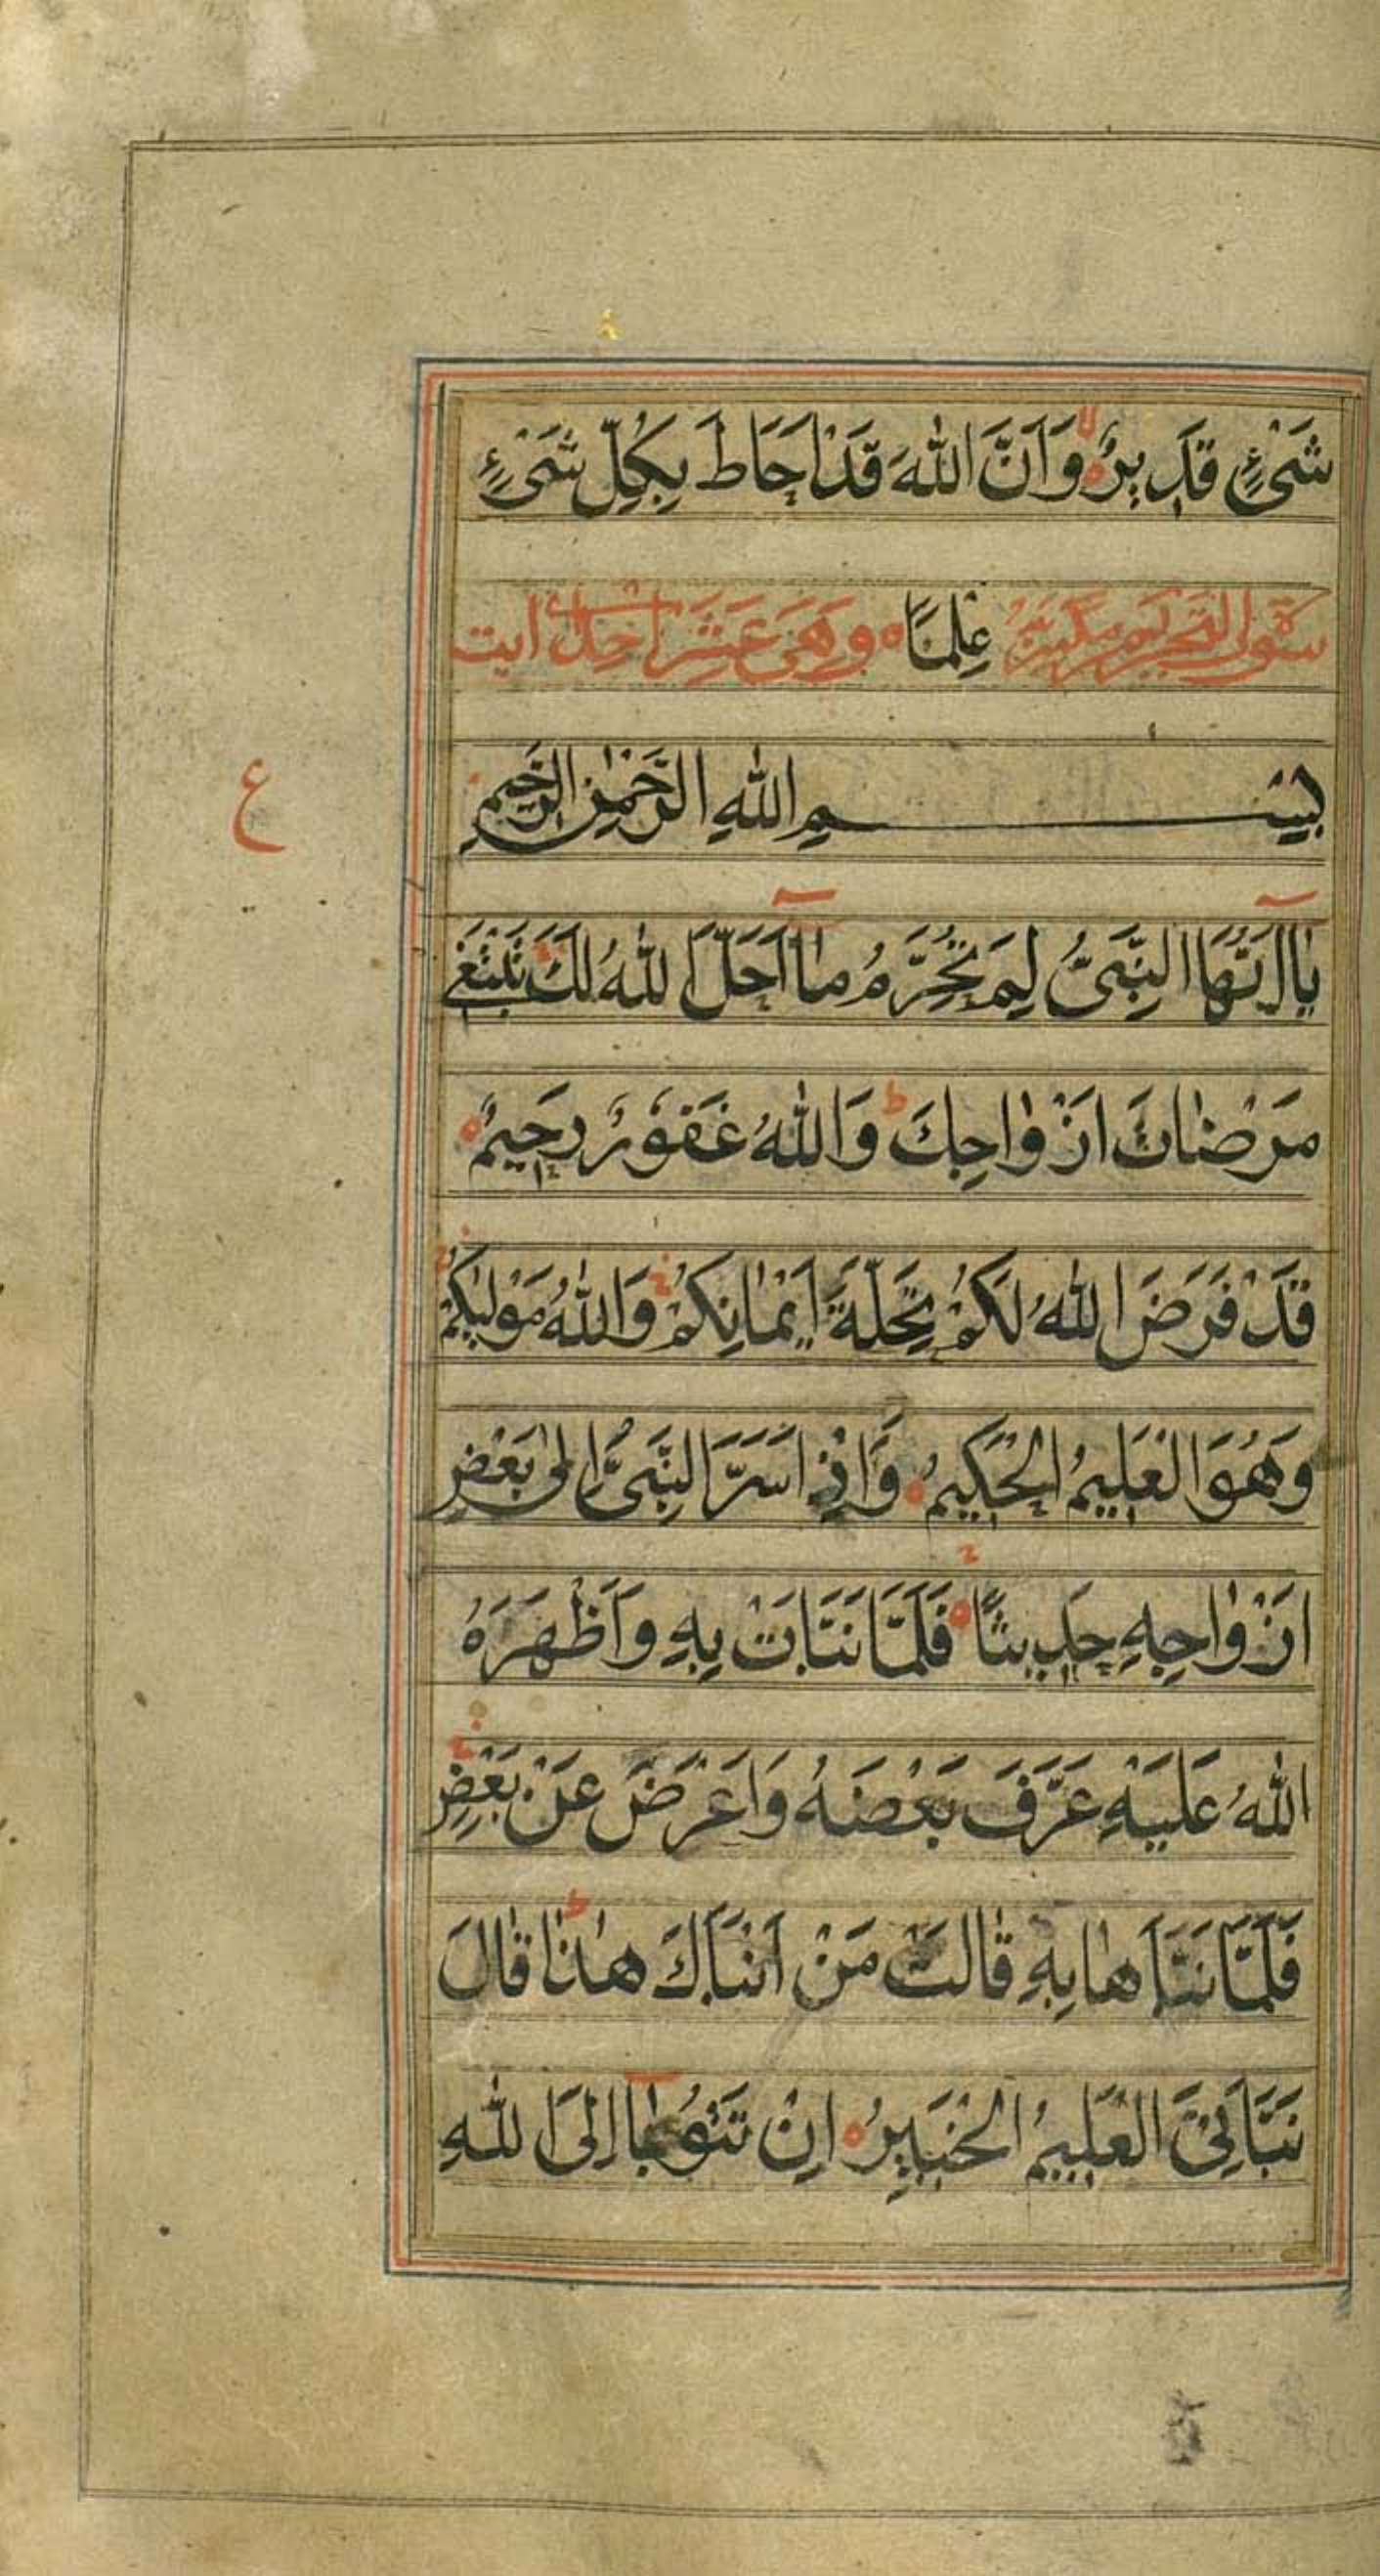 شَیْءٍ قَدِیْرٌ وَاَنَّ اللّٰهَ قَدْ اَحَاطَ بِکُلِّ شَیْءٍ
سورة التحریم عِلْمًا وهی عشر احدی ایت
بِسْمِ اللّٰهِ الرَّحْمٰنِ الرَّحِیْمِ
ع
یٰااَیُّهَا النَّبِیُّ لِمَ تُحَرِّمُ مٰا اَحَلَّ اللّٰهُ لَكَ تَبْتَغِی
مَرْضٰاتَ اَزْوٰاجِكَ ط وَاللّٰهُ غَفُوْرٌ رَحِیْمٌ
قَدْ فَرَضَ اللّٰهُ لَکُمْ تَحِلَّةَ اَیْمٰانِکُمْ وَاللّٰهُ مَوْلٰیکُمْ
وَهُوَ الْعَلِیْمُ الْحَکِیْمُ وَاِذْ اَسَرَّ النَّبِیُّ اِلٰی بَعْضِ
اَزْوٰاجِهِ حَدِیثًا فَلَمَّا نَبَّاَتْ بِهِ وَاَظْهَرَهُ
اللّٰهُ عَلَیْهِ عَرَّفَ بَعْضَهُ وَاَعْرَضَ عَنْ بَعْضٍ
فَلَمَّا نَبَّاَهٰا بِهِ قٰالَتْ مَنْ اَنْبَاَكَ هٰذٰا ط قٰالَ
نَبَّاَنِیَ الْعَلِیْمُ الْخَبِیْرُ اِنْ تَتُوْبٰا اِلَی اللّٰهِ